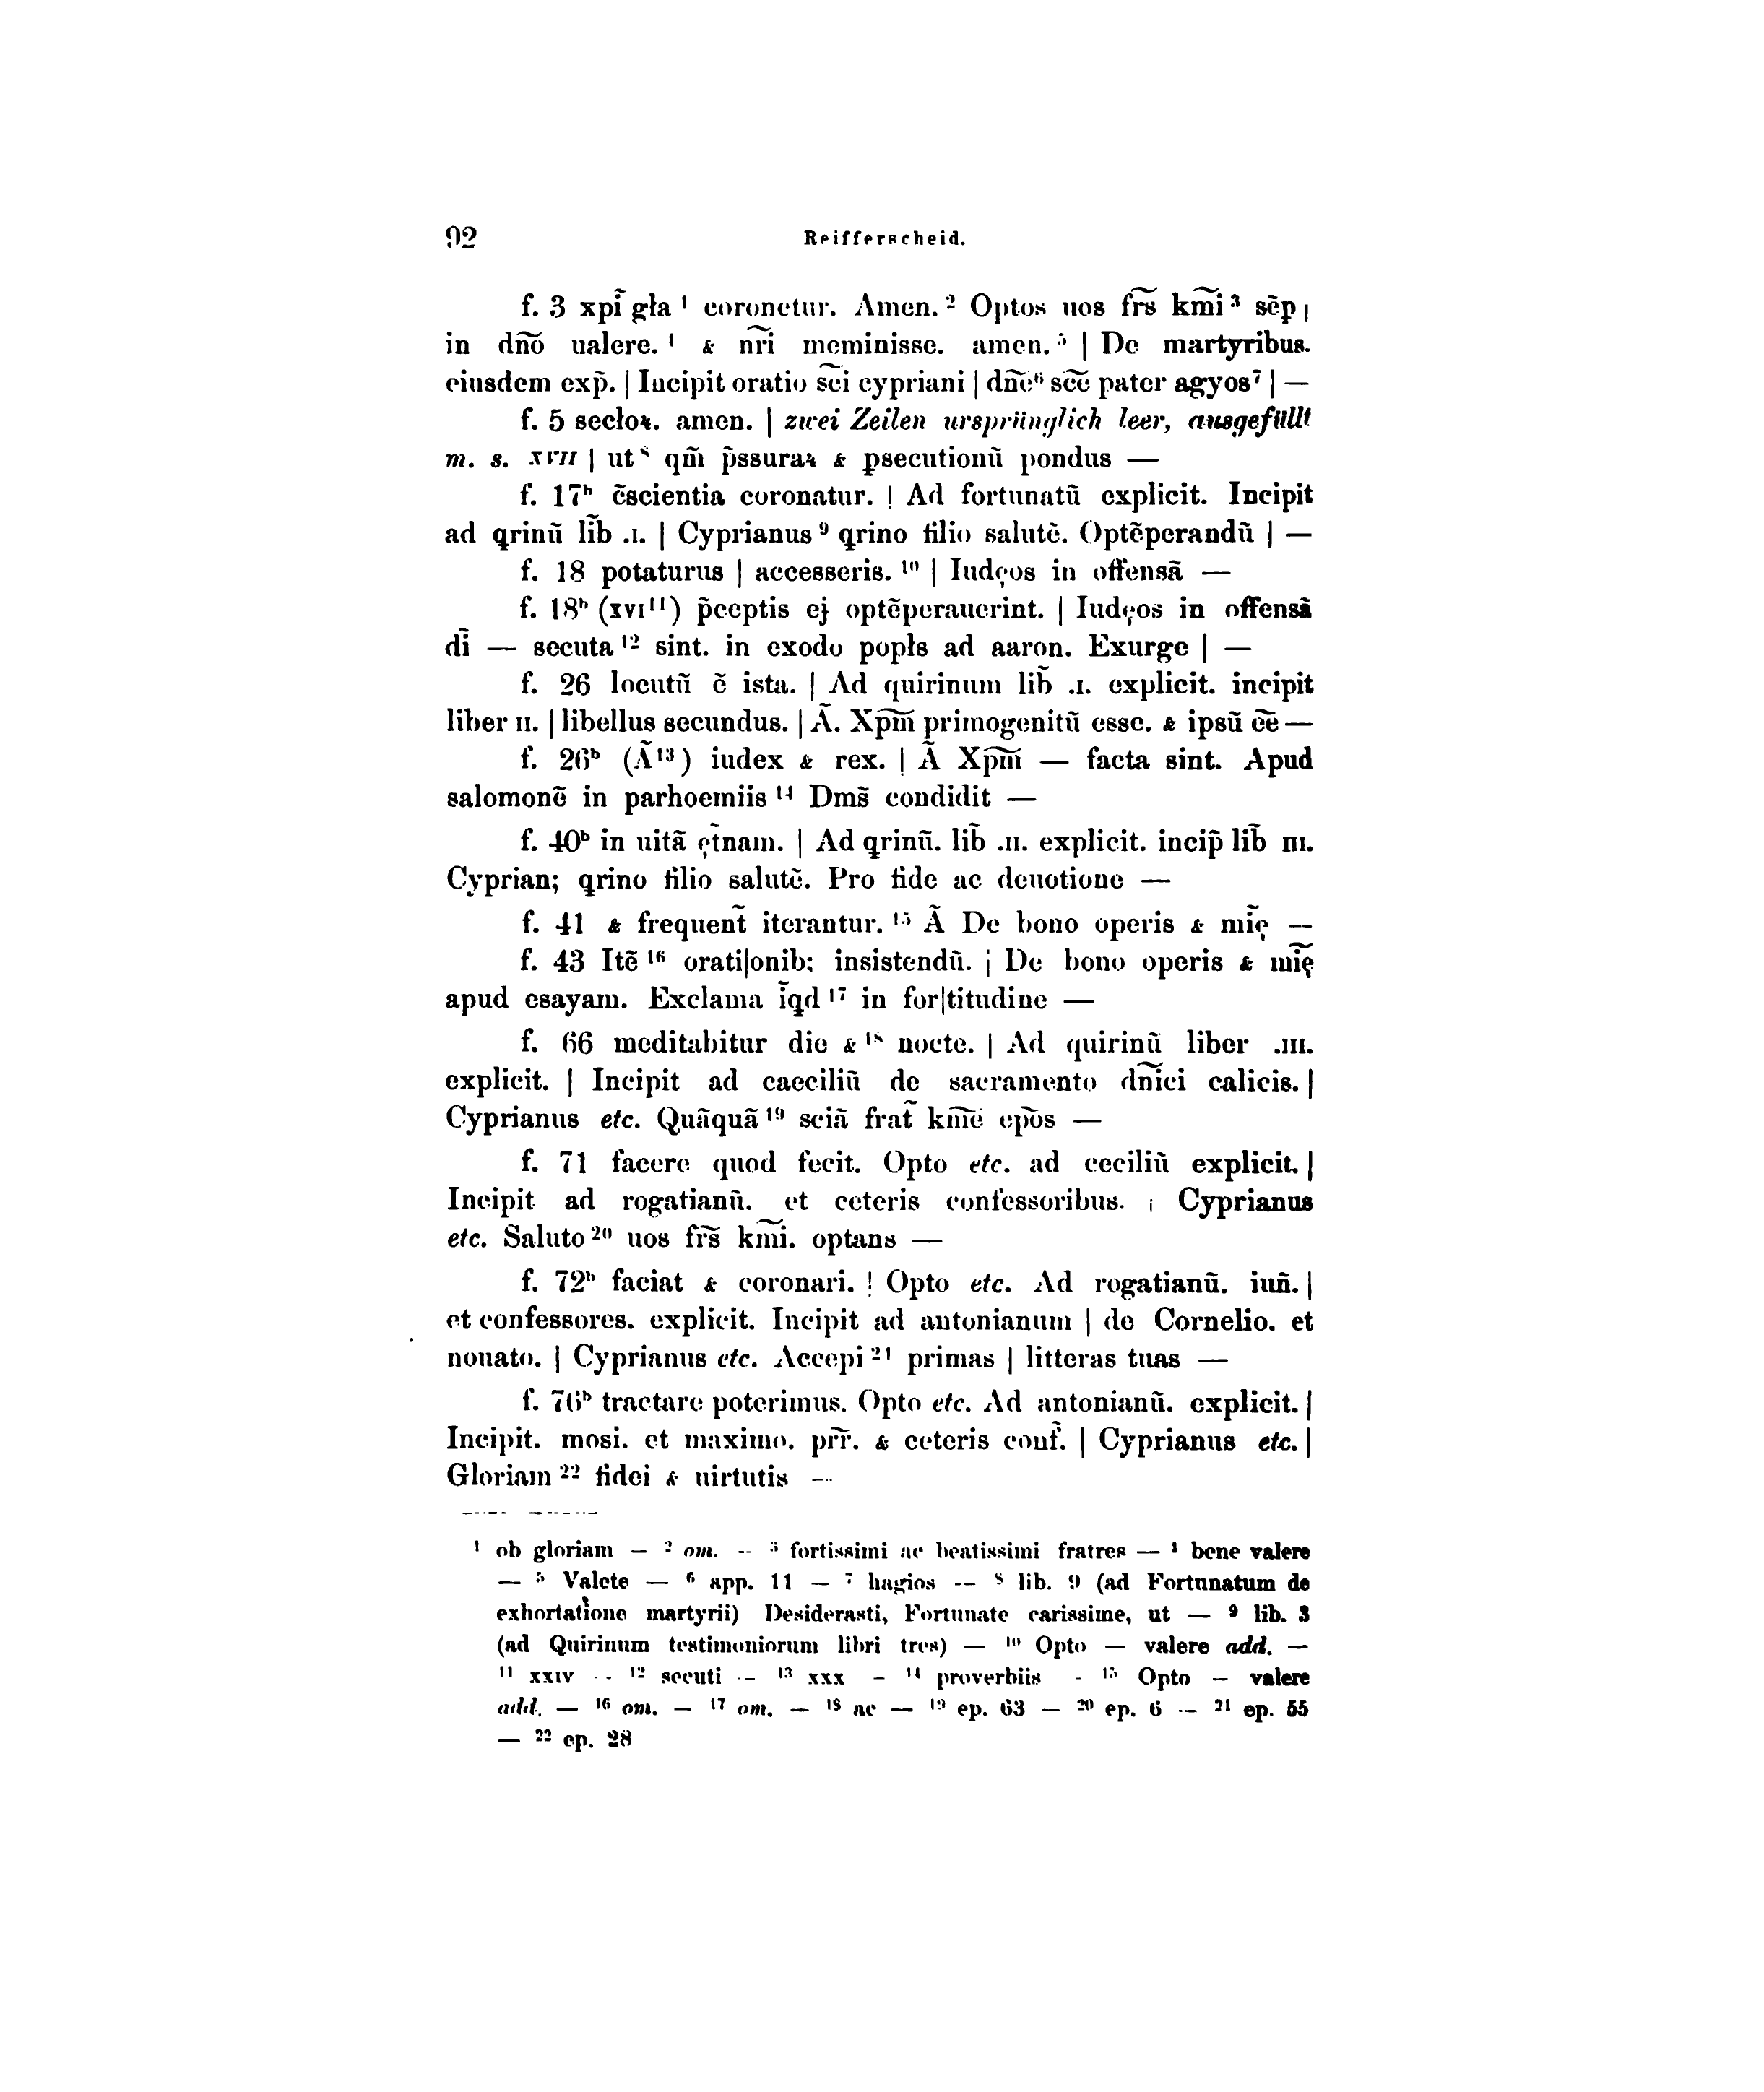 92 Reifferscheid.
f. 3 xpı̃ gła ¹ coronetur. Amen. ² Optos uos fr̃s km̃i ³ sẽp |
in dño ualere. ⁴ & nr̃i meminisse. amen. ⁵ | De martyribus.
eiusdem exp̃. | Incipit oratio sc̃i cypriani | dñe ⁶ sc̃e pater agyos ⁷ | —
f. 5 secłoꝝ. amen. | zwei Zeilen ursprünglich leer, ausgefüllt
m. s. XVII | ut ⁸ qm̃ p̃ssuraꝝ & ꝑsecutionũ pondus —
f. 17ᵇ c̃scientia coronatur. | Ad fortunatũ explicit. Incipit
ad qrinũ lib̃ .I. | Cyprianus ⁹ qrino filio salutẽ. Optẽperandũ | —
f. 18 potaturus | accesseris. ¹⁰ | Iudęos in offensã —
f. 18ᵇ (XVI ¹¹) p̃ceptis ej optẽperauerint. | Iudęos in offensã
dı̃ — secuta ¹² sint. in exodo popłs ad aaron. Exurge | —
f. 26 locutũ ẽ ista. | Ad quirinum lib̃ .I. explicit. incipit
liber II. | libellus secundus. | Ã. Xpm̃ primogenitũ esse. & ipsũ ẽe —
f. 26ᵇ (Ã ¹³) iudex & rex. | Ã Xpm̃ — facta sint. Apud
salomonẽ in parhoemiis ¹⁴ Dms̃ condidit —
f. 40ᵇ in uitã ęt̃nam. | Ad qrinũ. lib̃ .II. explicit. incip̃ lib̃ III.
Cyprian; qrino filio salutẽ. Pro fide ac deuotione —
f. 41 & frequent̃ iterantur. ¹⁵ Ã De bono operis & mı̃ę —
f. 43 Itẽ ¹⁶ orati|onib: insistendũ. | De bono operis & mı̃ę
apud esayam. Exclama ı̃qd ¹⁷ in for|titudine —
f. 66 meditabitur die & ¹⁸ nocte. | Ad quirinũ liber .III.
explicit. | Incipit ad caeciliũ de sacramento dñici calicis. |
Cyprianus etc. Quãquã ¹⁹ sciã frat̃ km̃e ep̃os —
f. 71 facere quod fecit. Opto etc. ad ceciliũ explicit. |
Incipit ad rogatianũ. et ceteris confessoribus. | Cyprianus
etc. Saluto ²⁰ uos fr̃s km̃i. optans —
f. 72ᵇ faciat & coronari. | Opto etc. Ad rogatianũ. iuñ. |
et confessores. explicit. Incipit ad antonianum | de Cornelio. et
nouato. | Cyprianus etc. Accepi ²¹ primas | litteras tuas —
f. 76ᵇ tractare poterimus. Opto etc. Ad antonianũ. explicit. |
Incipit. mosi. et maximo. pr̃r. & ceteris conf̃. | Cyprianus etc. |
Gloriam ²² fidei & uirtutis —
¹ ob gloriam — ² om. — ³ fortissimi ac beatissimi fratres — ⁴ bene valere
— ⁵ Valete — ⁶ app. 11 — ⁷ hagios — ⁸ lib. 9 (ad Fortunatum de
exhortatione martyrii) Desiderasti, Fortunate carissime, ut — ⁹ lib. 3
(ad Quirinum testimoniorum libri tres) — ¹⁰ Opto — valere add. —
¹¹ XXIV — ¹² secuti — ¹³ XXX — ¹⁴ proverbiis — ¹⁵ Opto — valere
add. — ¹⁶ om. — ¹⁷ om. — ¹⁸ ac — ¹⁹ ep. 63 — ²⁰ ep. 6 — ²¹ ep. 55
— ²² ep. 28